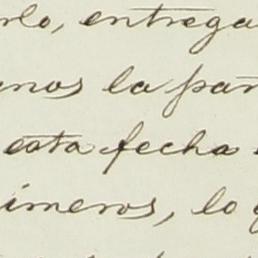 rlo, entrega
anos la par
esta fecha
imeros, lo q